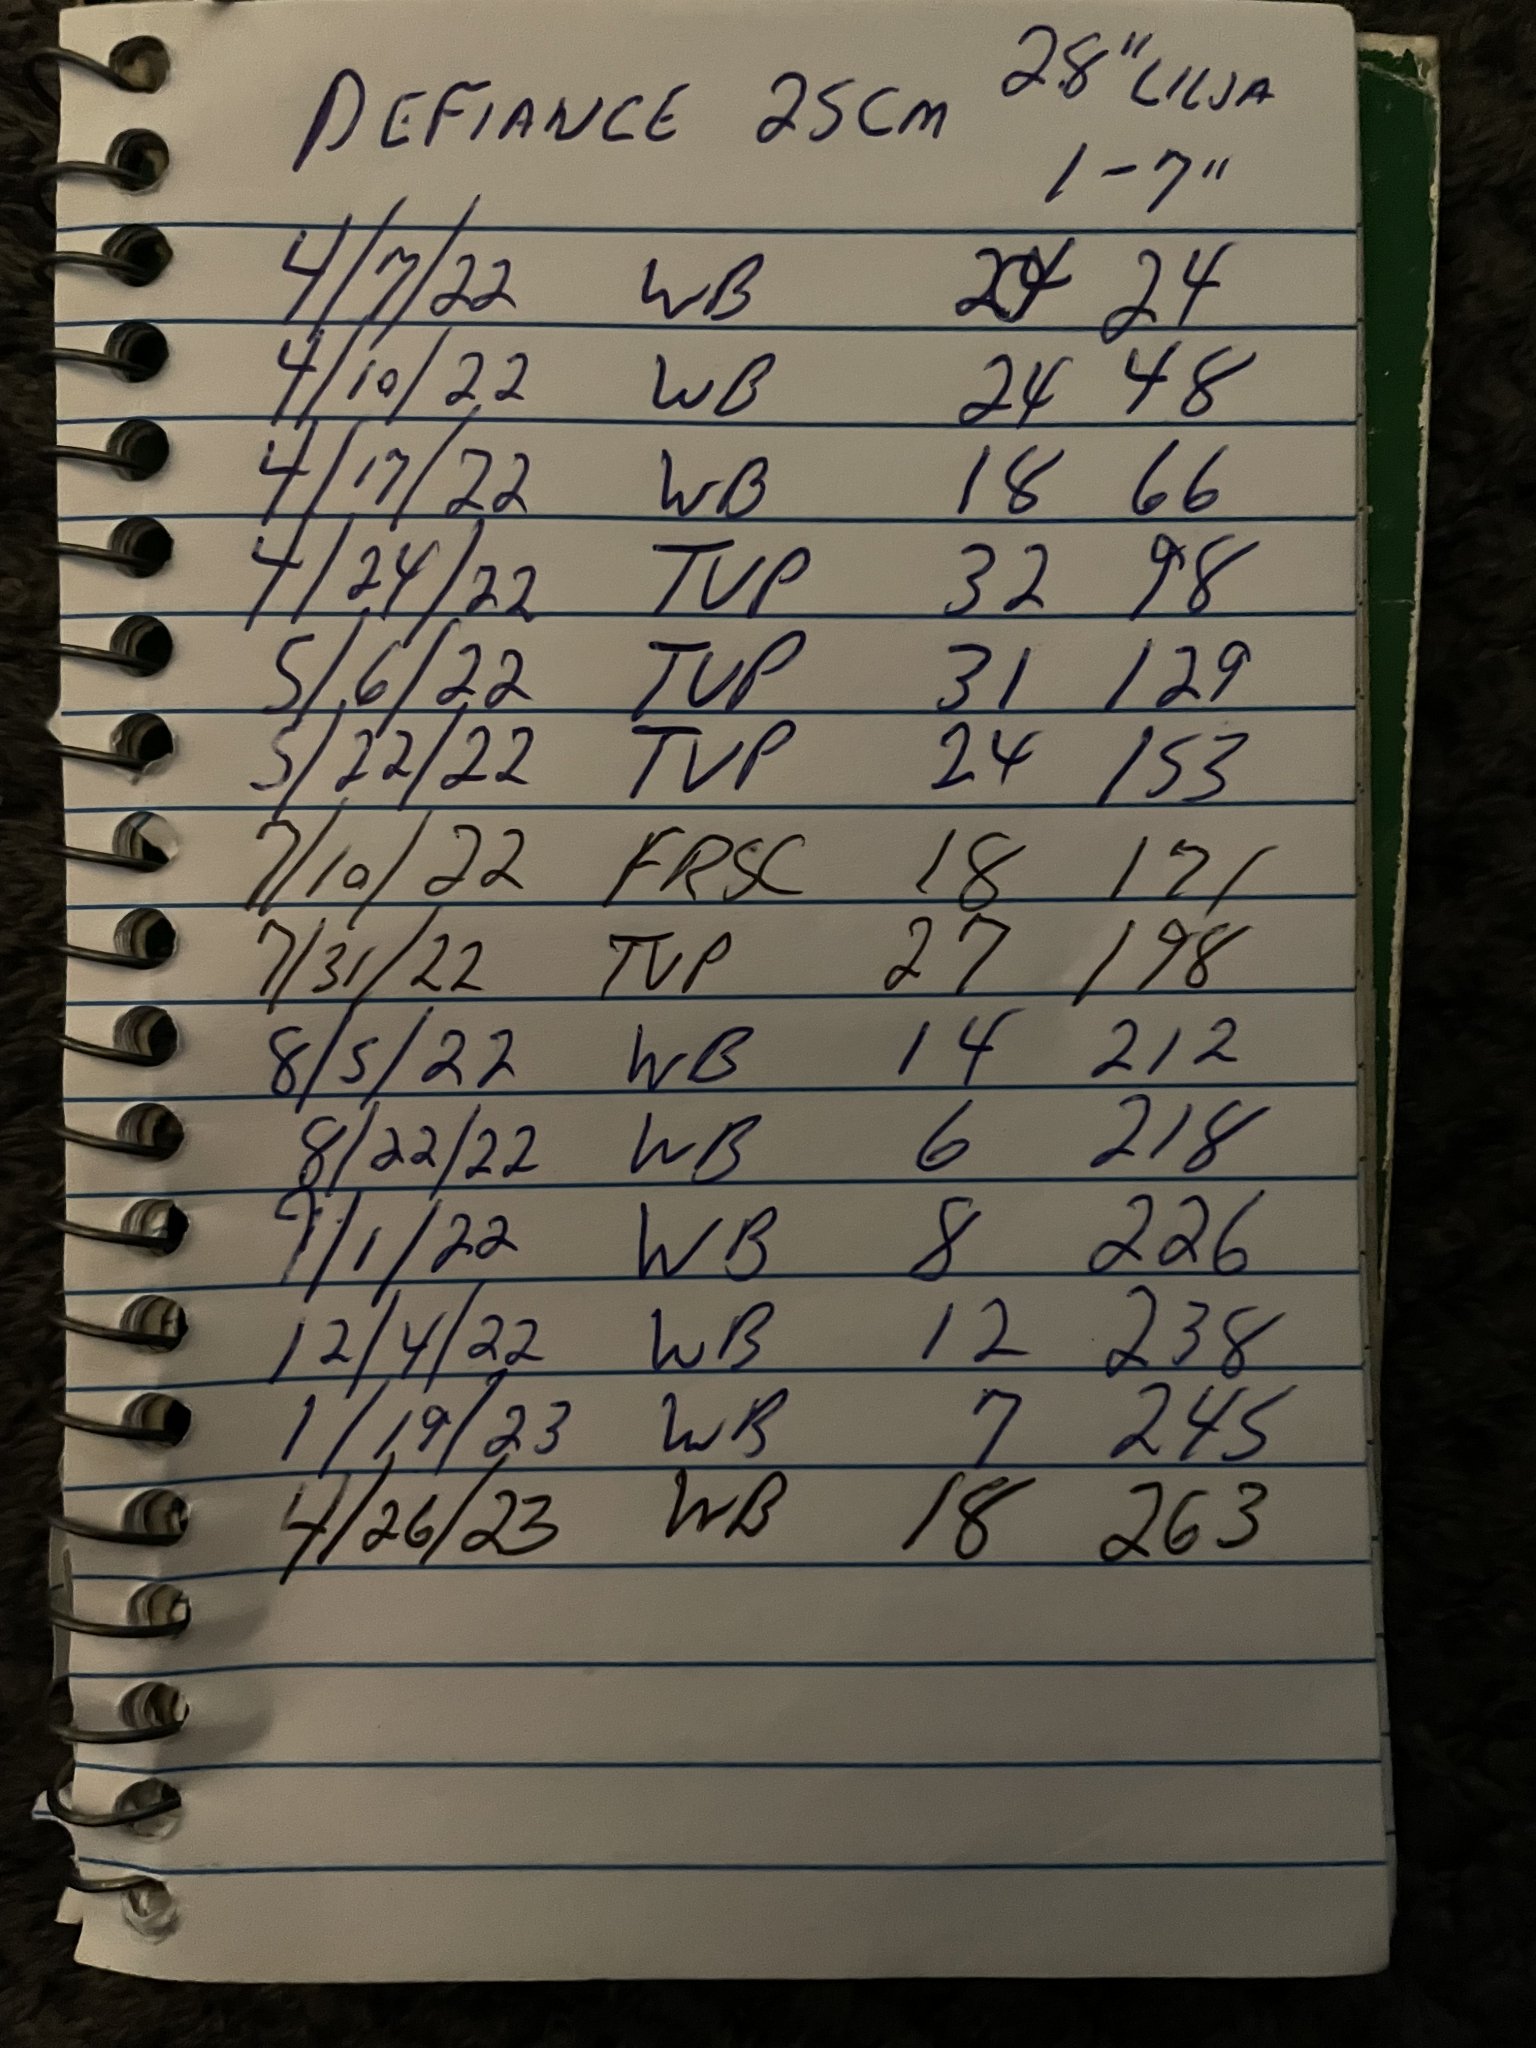 DEFIANCE 25CM 28" LILJA
1-7"
4/7/22 WB 24 24
4/10/22 WB 24 48
4/17/22 WB 18 66
4/24/22 TVP 32 98
5/6/22 TVP 31 129
5/22/22 TVP 24 153
7/10/22 FRSC 18 171
7/31/22 TVP 27 198
8/5/22 WB 14 212
8/22/22 WB 6 218
9/1/22 WB 8 226
12/4/22 WB 12 238
1/19/23 WB 7 245
4/26/23 WB 18 263